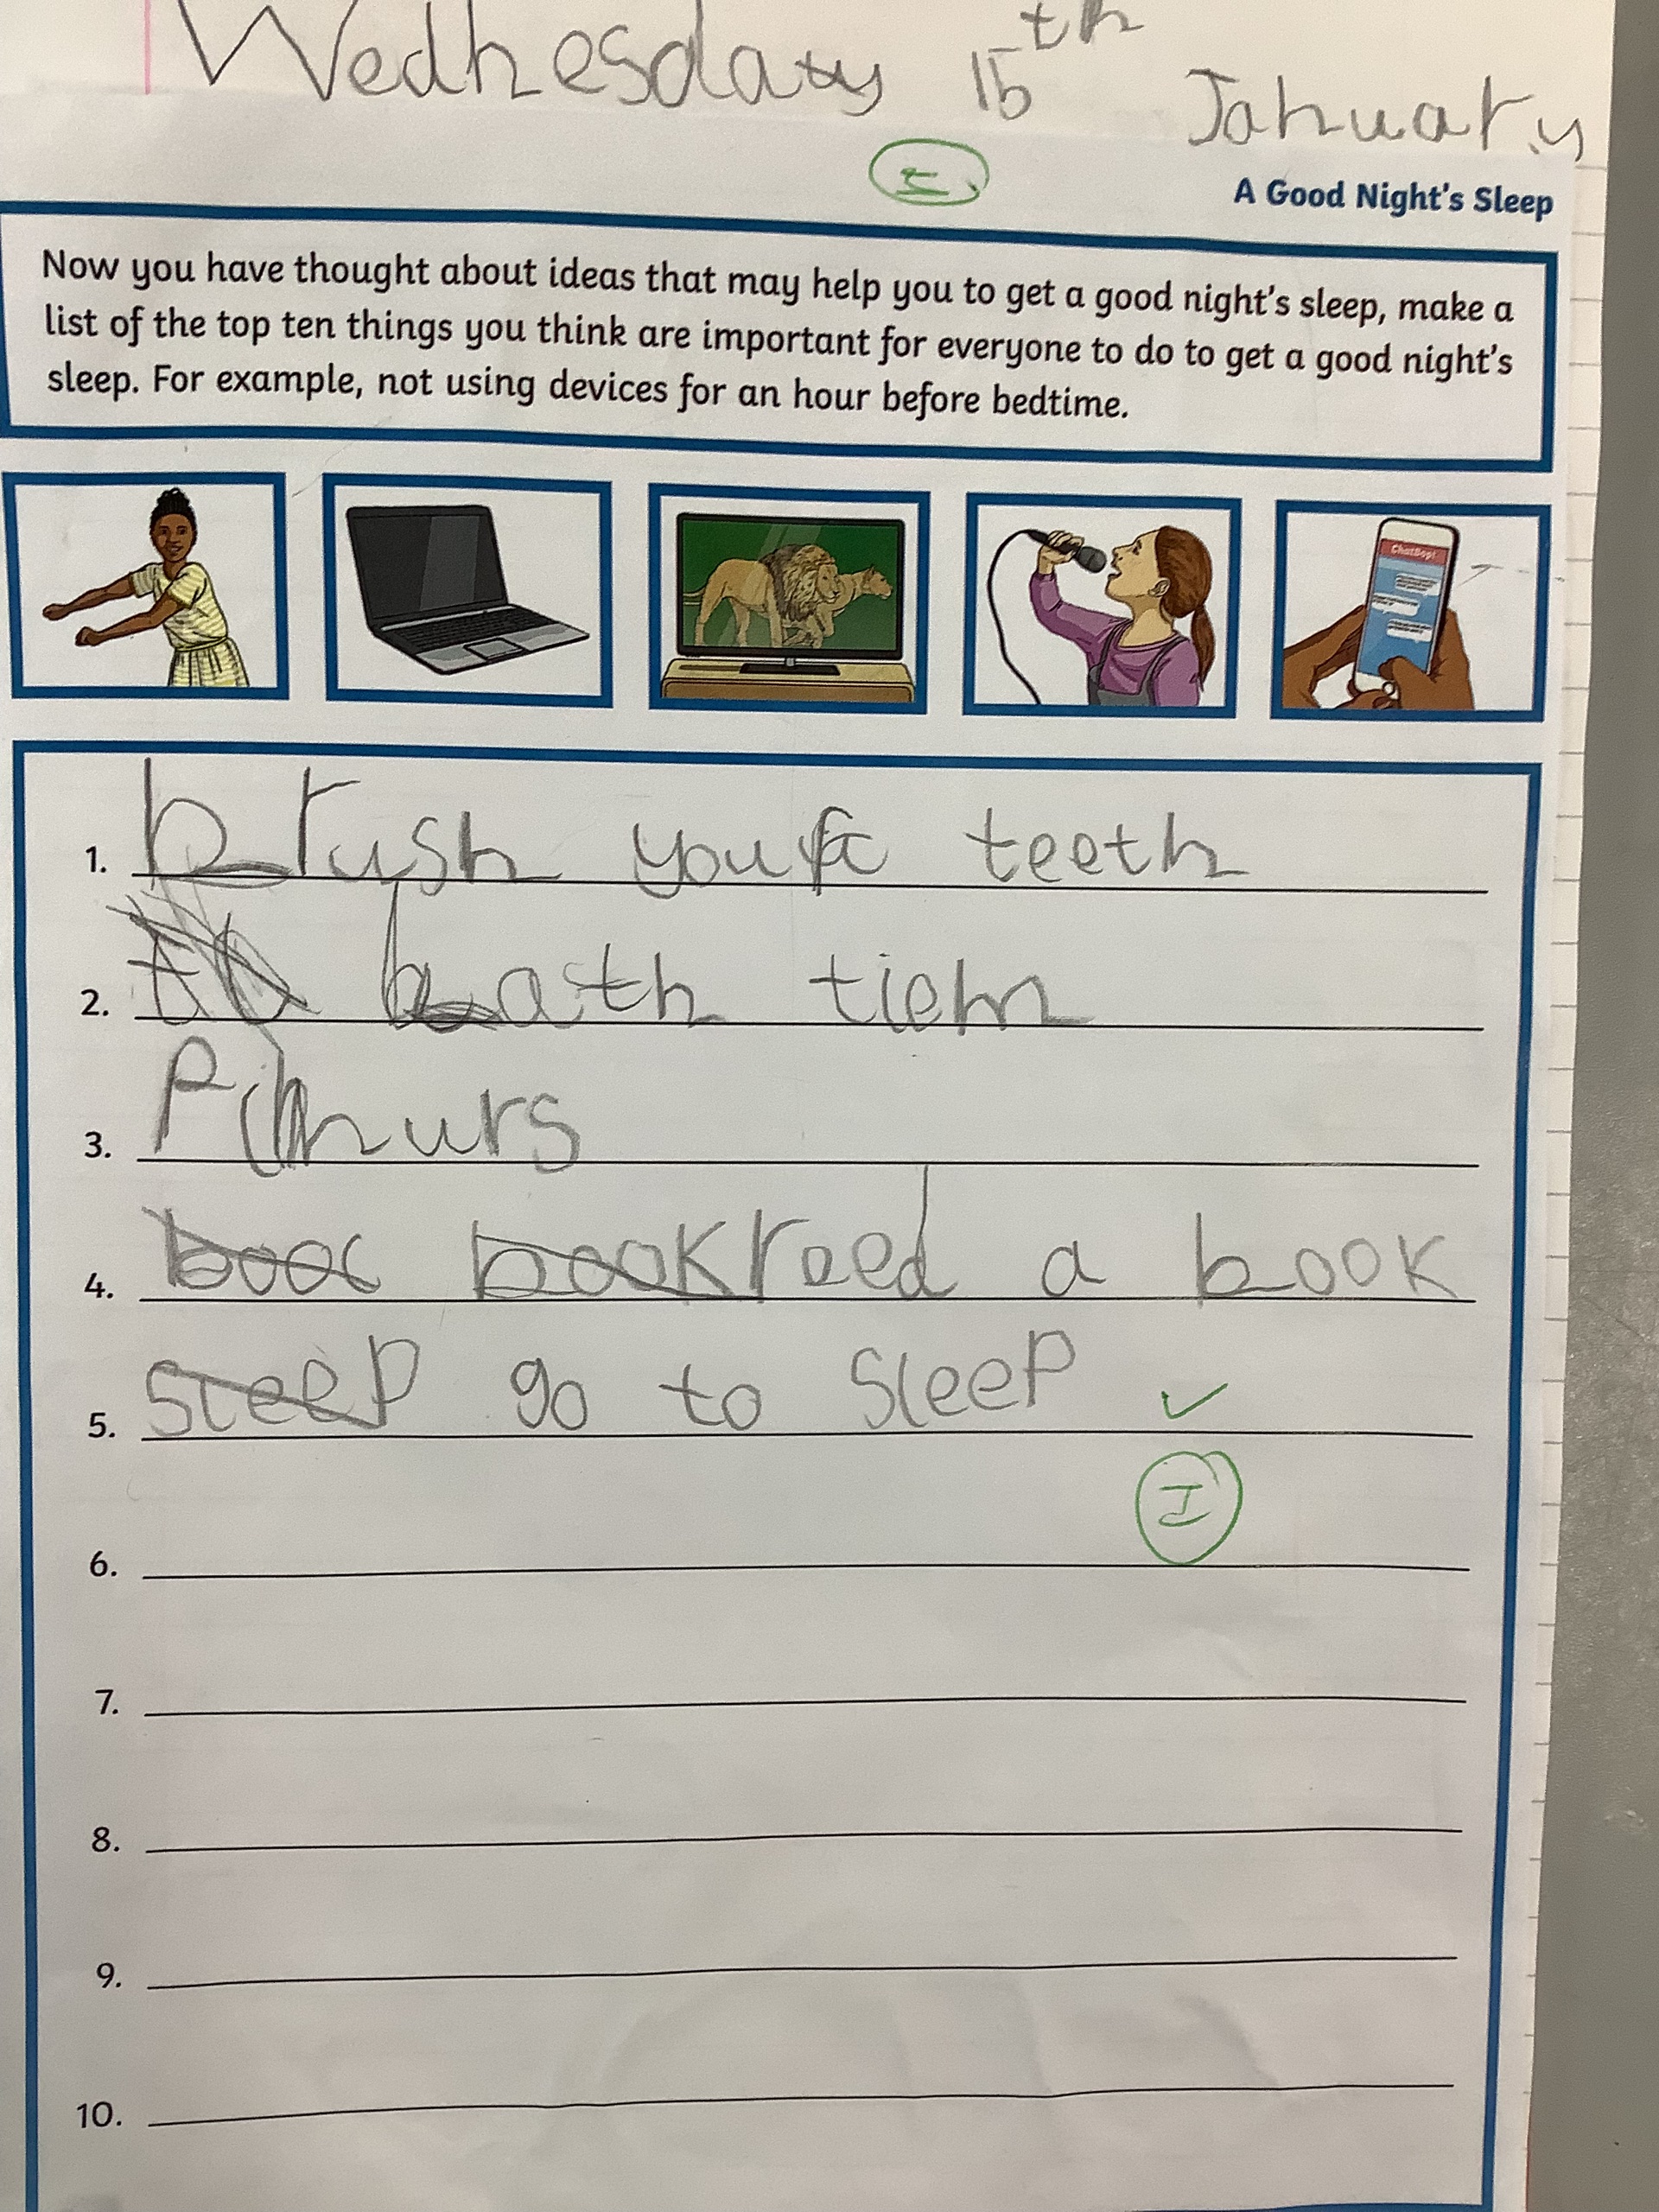 Wednesday 15th January
A Good Night's Sleep
Now you have thought about ideas that may help you to get a good night's sleep, make a
list of the top ten things you think are important for everyone to do to get a good night's
sleep. For example, not using devices for an hour before bedtime.
ChatBop!
1. brush your teeth
2. bath tiem
3.
4. booc book reed a book
5. sleep go to sleep
I
6.
7.
8.
9.
10.